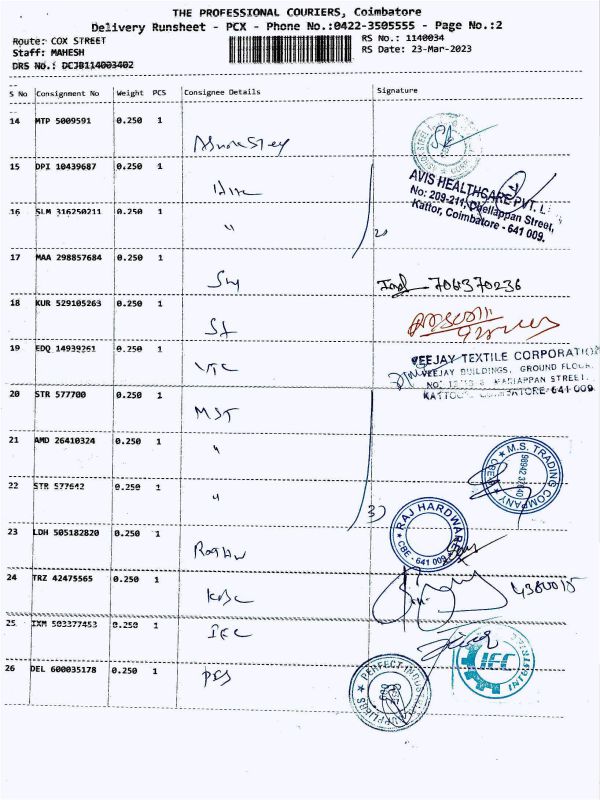 THE PROFESSIONAL COURIERS, Coimbatore
Delivery Runsheet - PCX - Phone No.:0422-3505555 - Page No.:2
Route: COX STREET
RS No.: 1140034
Staff: MAHESH
RS Date: 23-Mar-2023
DRS No.: DCJB114003402
S No Consignment No Weight PCS Consignee Details Signature
14 MTP 5009591 0.250 1
15 DPI 10439687 0.250 1
AVIS HEALTHCARE PVT. L
No: 209-211, Chellappan Street,
Kattor, Coimbatore - 641 009.
16 SLM 316250211 0.250 1 "
17 MAA 298857684 0.250 1
18 KUR 529105263 0.250 1
19 EDQ 14939261 0.250 1 VTC
VEEJAY TEXTILE CORPORATION
VEEJAY BUILDINGS, GROUND FLOOR,
MARIAPPAN STREET,
641 009
20 STR 577700 0.250 1 MST
21 AMD 26410324 0.250 1 "
M.S. TRADING COMPANY
CBE
22 STR 577642 0.250 1 "
RAJ HARDWARE
CBE - 641 009
23 LDH 505182820 0.250 1
24 TRZ 42475565 0.250 1
25 IXM 503377453 0.250 1 IEC
IEC
26 DEL 600035178 0.250 1